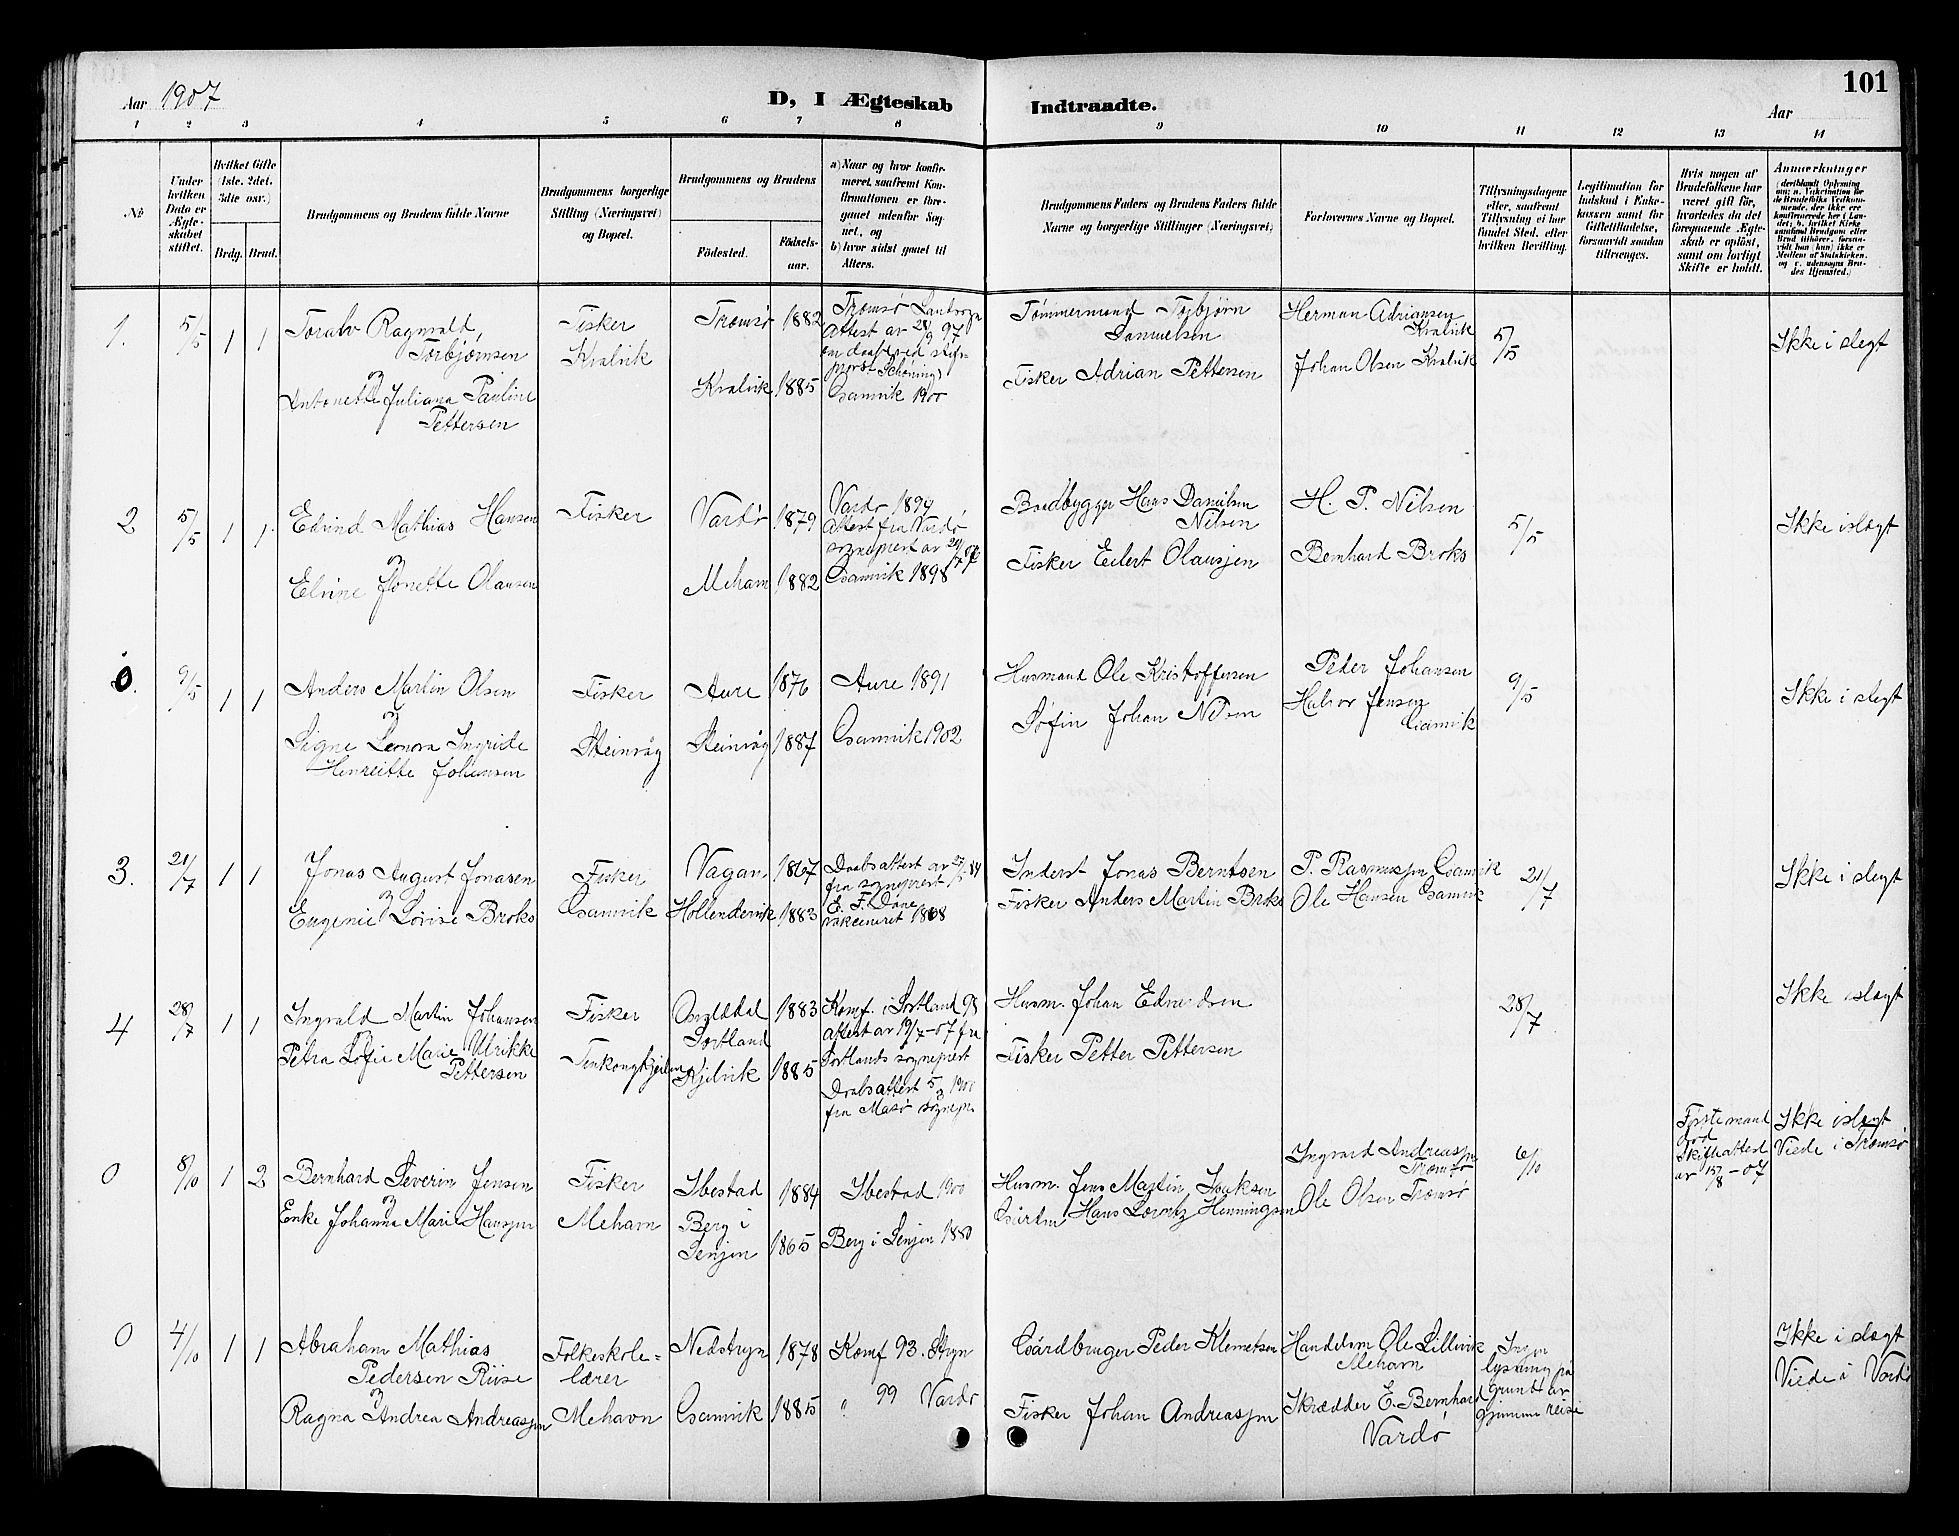 101
Aar 1907
D, I Ægteskab Indtraadte.
Aar
1 2 3 4 5 6 7 8 9 10 11 12 13 14
No
Under hvilken Dato er Ægteskabet stiftet.
Hvilket Gifte (1ste, 2det, 3dte osv.)
Brdg. Brud.
Brudgommens og Brudens fulde Navne
Brudgommens borgerlige Stilling (Næringsvei) og Bopæl.
Brudgommens og Brudens
Födested.
Födselsaar.
a) Naar og hvor konfirmeret, saafremt Konfirmationen er foregaaet udenfor Sognet, og
b) hvor sidst gaaet til Alters.
Brudgommens Faders og Brudens Faders fulde Navne og borgerlige Stillinger (Næringsvei)
Forlovernes Navne og Bopæl.
Tillysningsdagene eller, saafremt Tillysning ei har fundet Sted, efter hvilken Bevilling.
Legitimation for Indskud i Enkekassen samt for Giftetilladelse, forsaavidt saadan tiltrænges.
Hvis nogen af Brudefolkene har været gift før, hvorledes da det foregaaende Ægteskab er opløst, samt om lovligt Skifte er holdt.
Anmærkninger
1. 5/5 1 1
Toralv Ragnvald Torbjørnsen
Antonette Juliana Pauline Pettersen
Fisker
Kvalvik
Tromsø 1882
Kvalvik 1885
Tromsø Landsogn
Attest av 28/9 97
Gamvik 1900
Tømmermand Torbjørn Samuelsen
Fisker Adrian Pettersen
Herman Adriansen Kvalvik
Johan Olsen Kvalvik
5/5
Ikke i slegt
2 5/5 1 1
Edvind Mathias Hansen
Elvine Jonette Olausen
Fisker
Vardø 1879
Meham 1882
Vardø 1894
Attest fra Vardø
sogneprest av
Gamvik 1898
Hans Danielsen Nilsen
Fisker Eilert Olausen
H. P. Nilsen
Bernhard Broks
5/5
Ikke i slegt
0. 9/5 1 1
Anders Martin Olsen
Signe Leonora Ingride
Henreitte Johansen
Fisker
Steinvåg
Aure 1876
Steinvåg 1887
Aure 1891
Gamvik 1902
Husmand Ole Kristoffersen
Johan Nilsen
Peder Johansen
Halvor Jensen
Gamvik
9/5
Ikke i slegt
3. 21/7 1 1
Jonas August Jonasen
Eugenie Lovise Broks
Fisker
Gamvik
Vagan 1867
Hollendervik 1883
Daabsattest av
fra sogneprest
Inderst Jonas Berntsen
Fisker Anders Martin Broks
P. Rasmusen Gamvik
Ole Hansen Gamvik
21/7
Ikke i slegt
4 28/7 1 1
Ingvald Martin Johansen
Petra Sofie Marie Ulrikke
Pettersen
Fisker
Sortland 1883
Kjelvik 1885
Konf. i Sortland 98
Attest av 19/7-07 fra
Sortlands sogneprest
Daabsattest
fra Masø sognepr.
Husm. Johan
Fisker Petter Pettersen
28/7
Ikke i slegt
0 8/10 1 2
Bernhard Severin Jensen
Enke Johanna Marie Hansen
Fisker
Mehavn
Ibestad 1884
Berg i
Senjen 1865
Ibestad 1900
Berg i Senjen 1880
Husm. Jens Martin Isaksen
Hans Lorntz Henningsen
Ingvard Andreassen
Tromsø
Ole Olsen Tromsø
6/10
Første mand
død
Skifteattest
av 15/8-07
Ikke i slegt
Viede i Tromsø
0 4/10 1 1
Abraham Mathias
Pedersen Riise
Ragna Andrea Andreasen
Folkeskole-
lærer
Mehavn
Nedstryn 1878
Gamvik 1885
Konf 93. Stryn
" 99 Vardø
Gårdbruger Peder Klemetsen
Fisker Johan Andreasen
Handelsm Ole Lillevik
Mehavn
Skrædder E. Bernhard
Vardø
Ingen
lysning på
grund av
reise
Ikke i slegt
Viede i Vardø